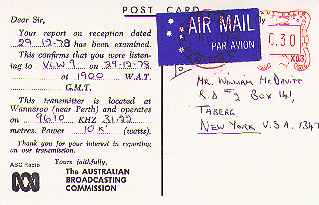 POST CARD
Dear Sir,
Your report on reception dated
29-12-78 has been examined.
This confirms that you were listen-
ing to VLW9 on 29-12-78
at 0900 W.A.T.
G.M.T.
This transmitter is located at
Wanneroo (near Perth) and operates
on 9610 KHZ 31.22
metres. Power 10K (watts).
Thank you for your interest in reporting
on our transmission.
Yours faithfully,
ABC Radio
The AUSTRALIAN
BROADCASTING
COMMISSION
AIR MAIL
PAR AVION
0.30
MR. WILLIAM McDAVITT
R.D #2 BOX 141,
TABERG
NEW YORK U.S.A. 1347